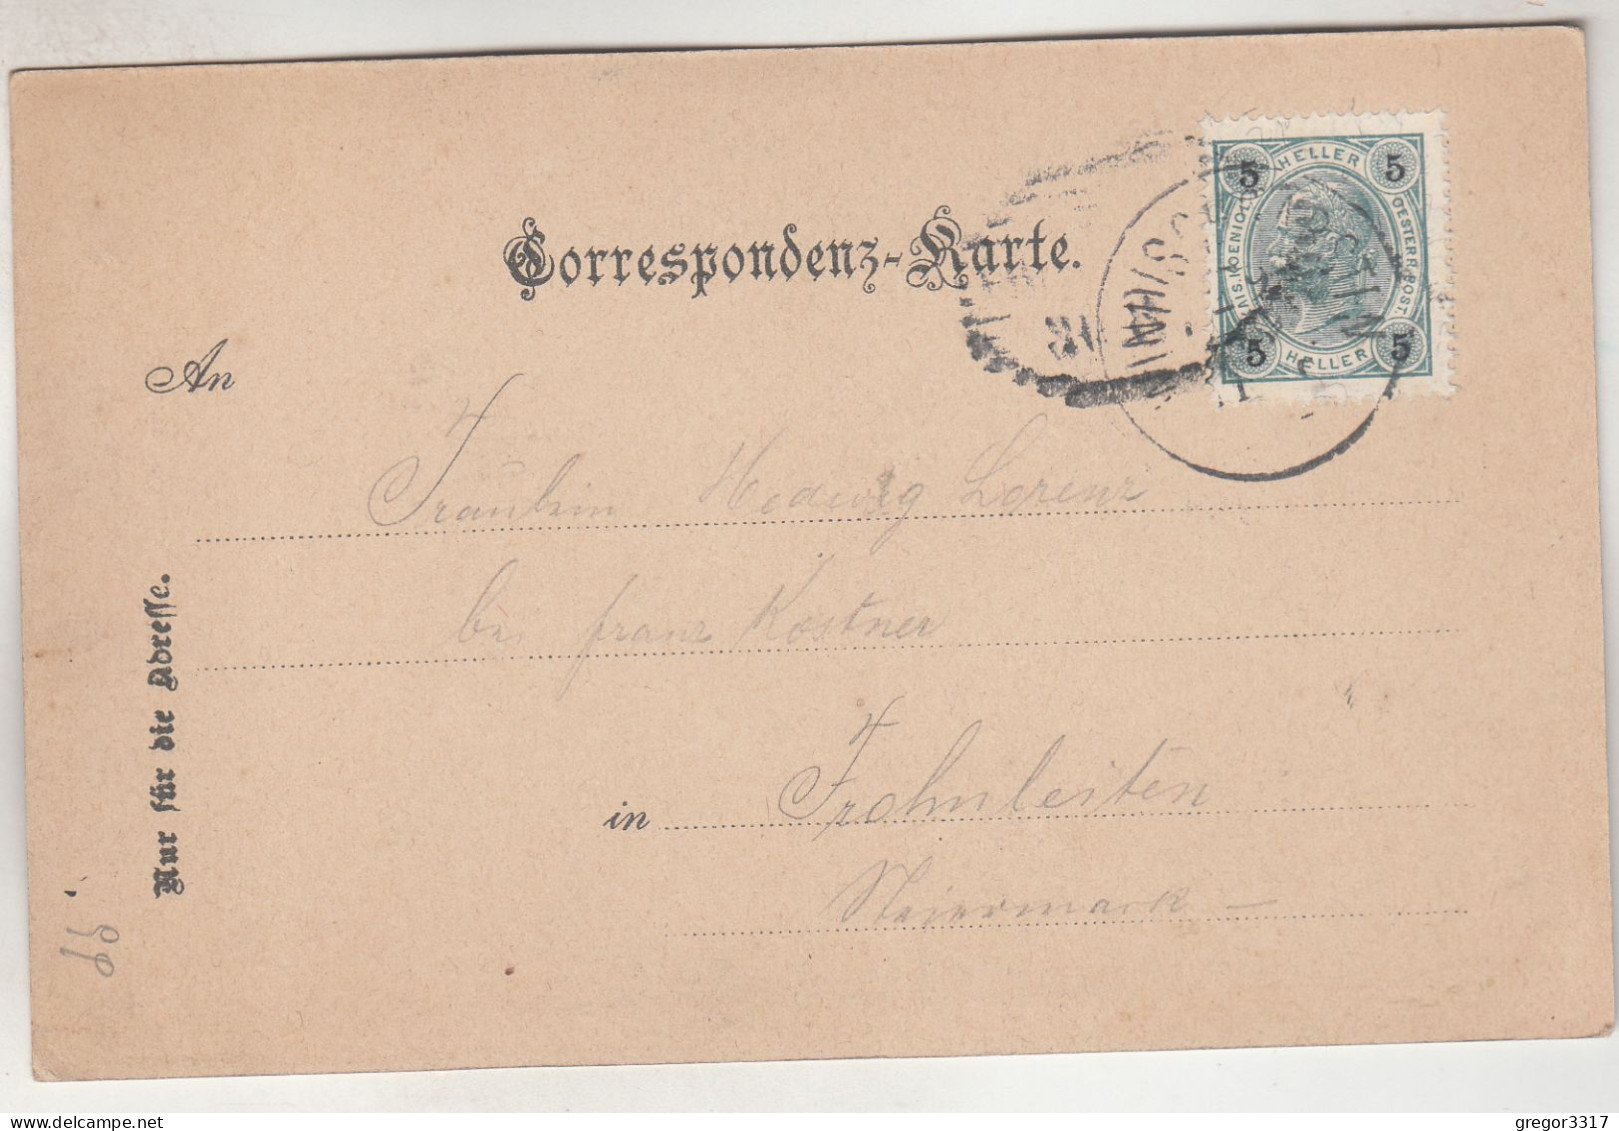 Correspondenz-Karte.
5 HELLER 5
KAIS. KOENIGL. OESTERR. POST.
5 HELLER 5
An
Fräulein Hedwig Lorenz
bei Franz Kostner
in Frohnleiten
Steiermark –
Nur für die Adresse.
delcampe.net
gregor3317